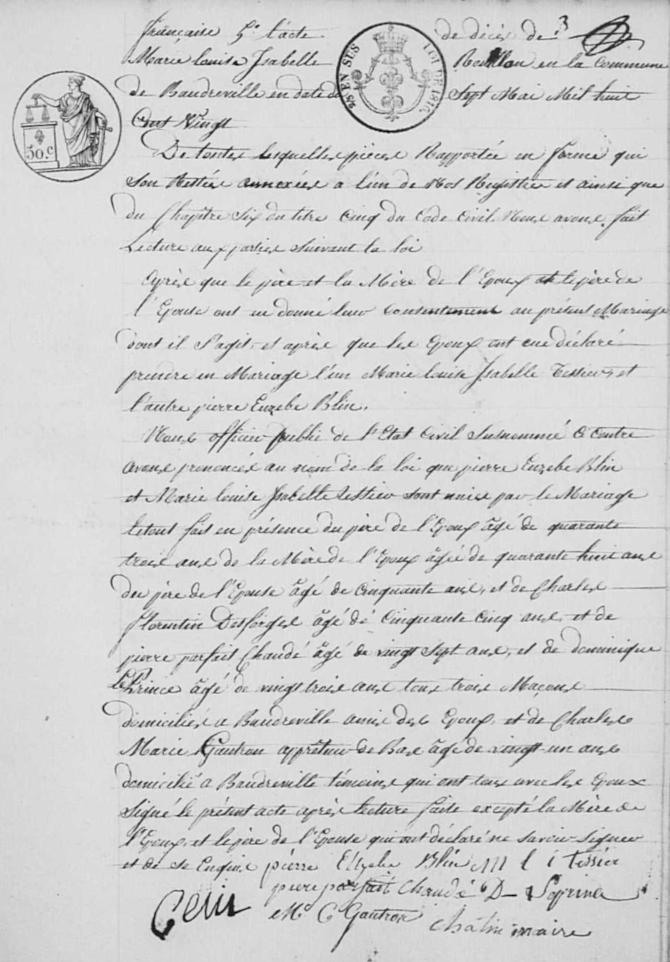 française 5° l'acte de décès de 3
Marie Louise Isabelle en la Commune
de Baudreville en date du Sept Mai Mil huit
Cent Vingt
EN SUS
LOI DE 1816
50 c
De toutes lesquelles pièces Rapportée en forme qui
Son Restées annexées a l'un de Nos Registre et ainsi que
du Chapitre Six du titre Cinq du Code Civil Nous avons fait
Lecture aux parties suivant la loi
après que le père et la Mère de l'Epoux et le père de
l'Epouse ont en donné leur Consentement au présent Mariage
dont il S'agit, et après que les Epoux ont eue déclaré
prendre en Mariage l'un Marie Louise Isabelle Tessier, et
l'autre pierre Euzebe Blin.
Nous officier public de l'Etat Civil Susnommé
avons prononcé au nom de la loi que pierre Euzebe Blin
et Marie Louise Isabelle tessier sont unies par le Mariage
le tout fait en présence du père de l'Epoux âgé de quarante
trois ans de la Mère de l'Epoux âgée de quarante huit ans
du père de l'Epouse âgé de Cinquante ans, et de Charles
florentin Desforges âgé de Cinquante Cinq ans, et de
pierre parfait Chaudé âgé de vingt Sept ans, et de dominique
Le Prince âgé de vingt trois ans tous trois Maçons
domiciliés a Baudreville amis des Epoux, et de Charles
Marie Gautron apprêteur de Bas âgé de vingt un ans
domicilié a Baudreville témoins qui ont tous avec les Epoux
Signé le présent acte après lecture faite excepté la Mère de
l'Epoux, et le père de l'Epouse qui ont déclaré ne Savoir Signer
et de Ce Enquis pierre Euzebe Blin M l i Tessier
pierre parfait chaudé D Leprince
M. C Gautron
maire